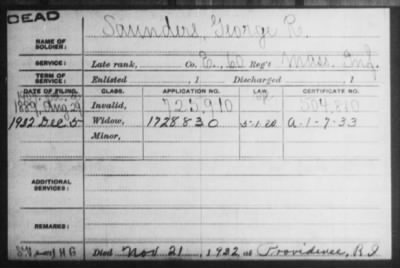 DEAD
NAME OF SOLDIER: Saunders, George R.
SERVICE: Late rank, Co. E, 60 Reg't Mass. Inf.
TERM OF SERVICE: Enlisted , 1 Discharged , 1
DATE OF FILING. CLASS. APPLICATION NO. LAW. CERTIFICATE NO.
1889 Aug 29 Invalid, 725,910 504,810
1932 Dec 5 Widow, 1728830 5-1-20 A-1-7-33
Minor,
ADDITIONAL SERVICES:
REMARKS:
Died Nov 21, 1932 at Providence, R I